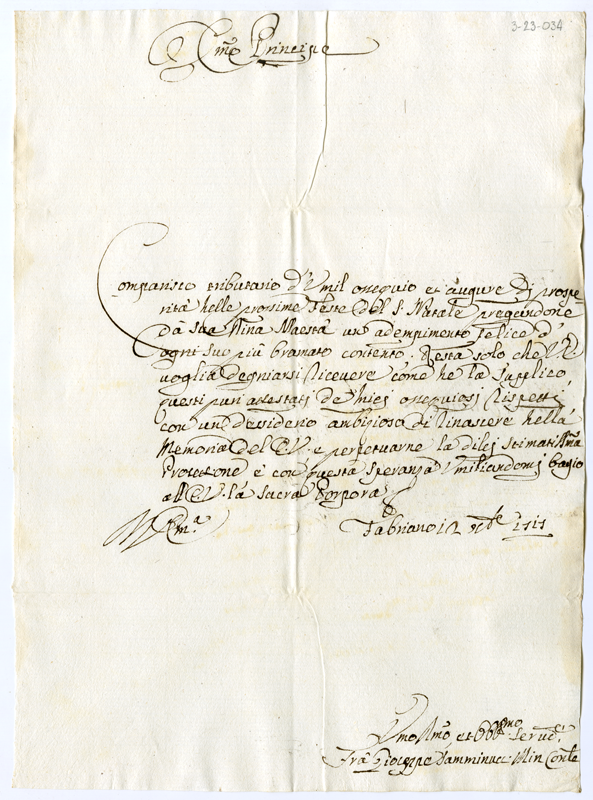 3-23-034
E.mo Principe
Comparisco tributario d'Vmil ossequio et augure di prospe
rità nelle prossime Feste del S. Natale pregandone
da Sua Divina Maestà un adempimento felice d'
ogni suo più bramato contento. Resta solo che V.E.
voglia degniarsi ricevere come ne la supplico
questi puri attestati de miei ossequiosi rispetti
con un dessiderio ambizioso di rinascere nella
Memoria del E.V. e perpetuarne la di lei stimatis.ma
Protetione e con questa speranza Vmiliandomi bagio
all E.V. la Sacra Porpora
Em.a
Fabriano 12 Xbre
Vmo Dmo et Obb.mo Servd.
Fra Gioseppe Min Conle